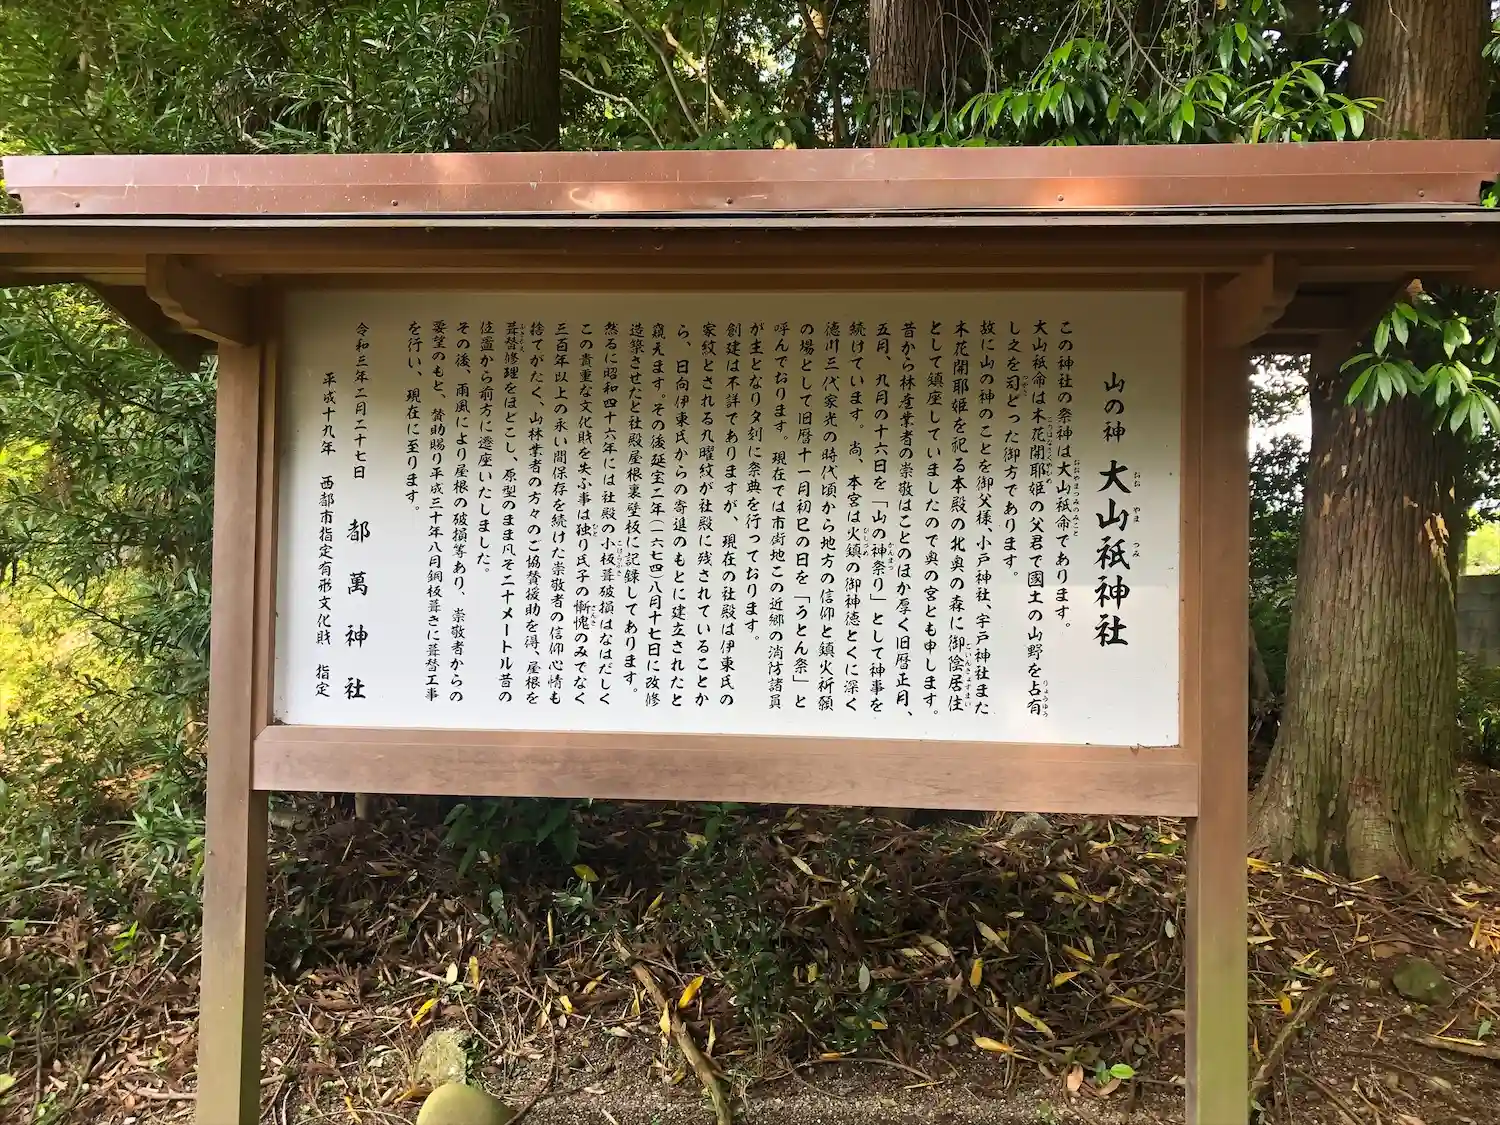 山の神 大山祇神社
この神社の祭神は大山祇命であります。
大山祇命は木花開耶姫の父君で國土の山野を占有
し之を司どった御方であります。
故に山の神のことを御父様、小戸神社、宇戸神社また
木花開耶姫を祀る本殿の北奥の森に御陰居住
として鎮座していましたので奥の宮とも申します。
昔から林産業者の崇敬はことのほか厚く旧暦正月、
五月、九月の十六日を「山の神祭り」として神事を
続けています。尚、本宮は火鎮の御神徳とくに深く
徳川三代家光の時代頃から地方の信仰と鎮火祈願
の場として旧暦十一月初巳の日を「うとん祭」と
呼んでおります。現在では市街地この近郷の消防諸員
が主となり夕刻に祭典を行っております。
創建は不詳でありますが、現在の社殿は伊東氏の
家紋とされる九曜紋が社殿に残されていることか
ら、日向伊東氏からの寄進のもとに建立されたと
窺えます。その後延宝二年(一六七四)八月十七日に改修
造築させたと社殿屋根裏壁板に記録してあります。
然るに昭和四十六年には社殿の小板葺破損はなはだしく
この貴重な文化財を失ふ事は独り氏子の慚愧のみでなく
三百年以上の永い間保存を続けた崇敬者の信仰心情も
捨てがたく、山林業者の方々のご協賛援助を得、屋根を
葺替修理をほどこし、原型のまま凡そ二十メートル昔の
位置から前方に遷座いたしました。
その後、雨風により屋根の破損等あり、崇敬者からの
要望のもと、賛助賜り平成三十年八月銅板葺きに葺替工事
を行い、現在に至ります。
令和三年二月二十七日 都萬神社
平成十九年 西都市指定有形文化財 指定